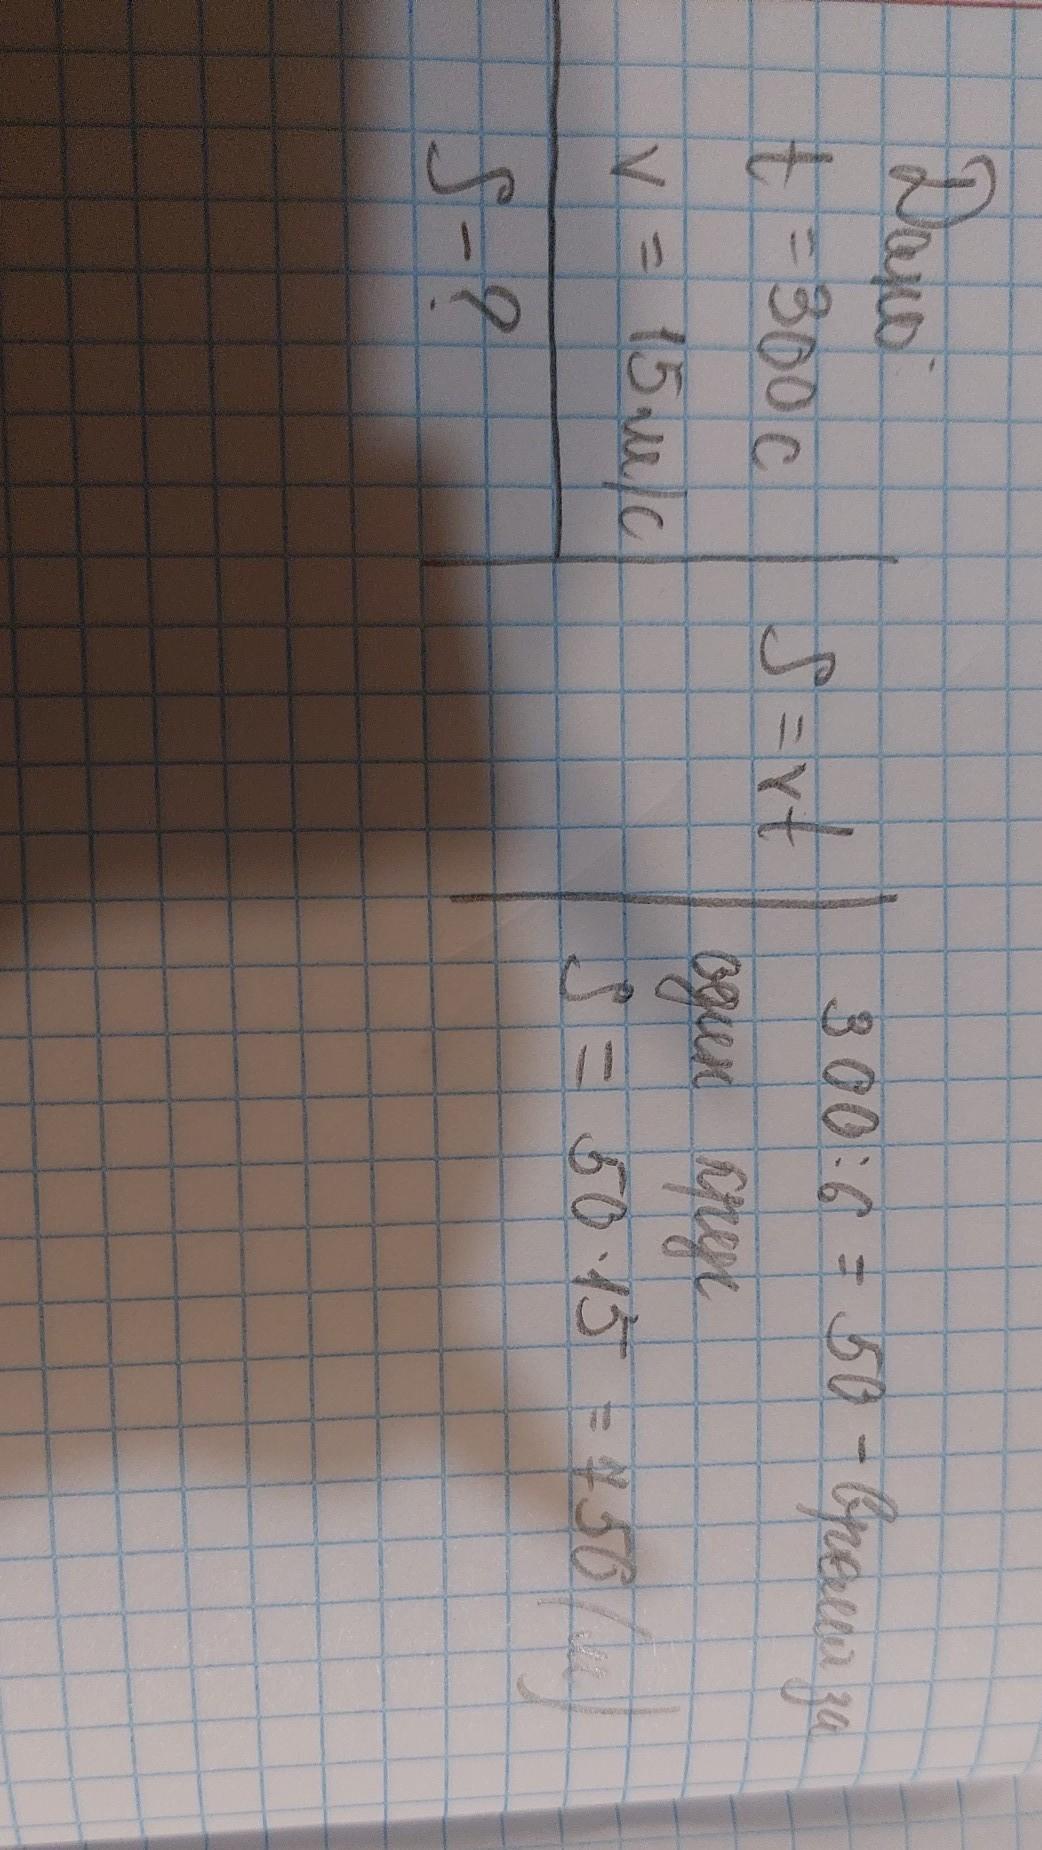 Дано:
t = 300 с
v = 15 м/с
S - ?
S = vt
300 : 6 = 50 - времени за
один круг
S = 50 · 15 = 750 (м)